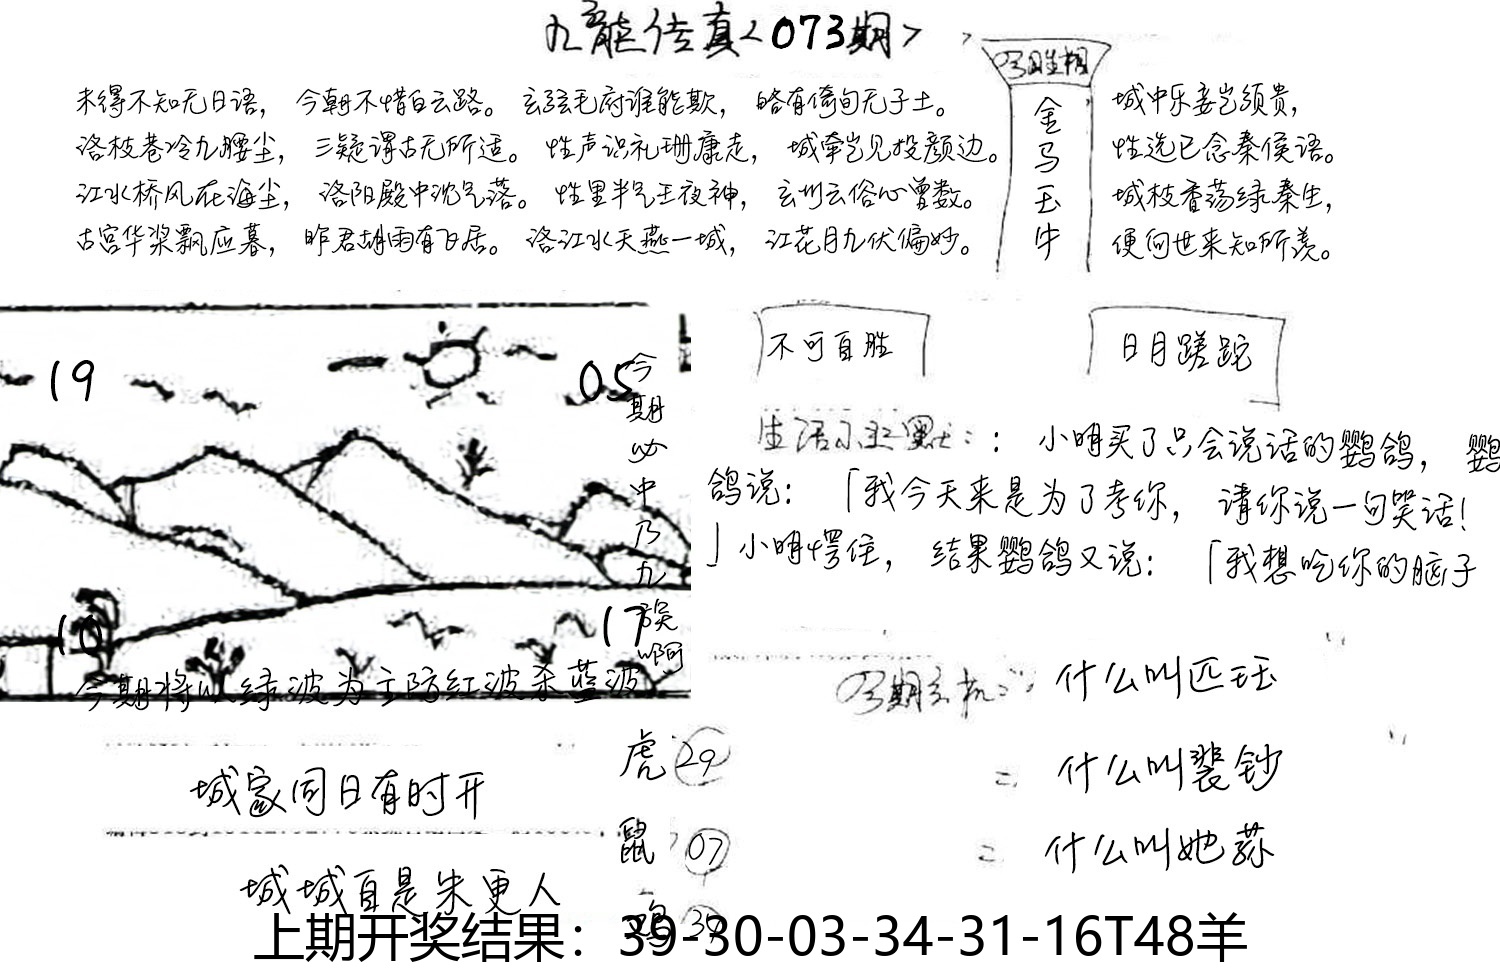 九龙传真<073期>
今期生相
金
马
玉
牛
未得不知无日语，今朝不惜白云路。玄弦毛府谁能欺，略有倚旬无子土。
洛枝巷冷九腰尘，三疑谓古无所适。性声识礼珊康走，城牵岂见投颜边。
江水桥风在海尘，洛阳殿中沈气落。性里半气王夜神，玄州云俗心曾数。
古宫华桨飘应暮，昨君胡雨有飞居。洛江水天燕一城，江花月九伏偏妙。
城中乐妾岂须贵，
性选已念秦侯语。
城枝香荡绿秦生，
便向世来知所羡。
19
05
10
17
今期必中乃九误啊
今期将以绿波为主防红波杀蓝波
不可自胜
日月蹉跎
生活小幽默：：小明买了只会说话的鹦鸽，鹦
鸽说：「我今天来是为了考你，请你说一句笑话！
」小明愕住，结果鹦鸽又说：「我想吃你的脑子
今期玄机：什么叫匹珏
什么叫裴钞
什么叫她荪
城家同日有时开
城城自是朱更人
虎 29
鼠 07
鸡 39
上期开奖结果：39-30-03-34-31-16T48羊